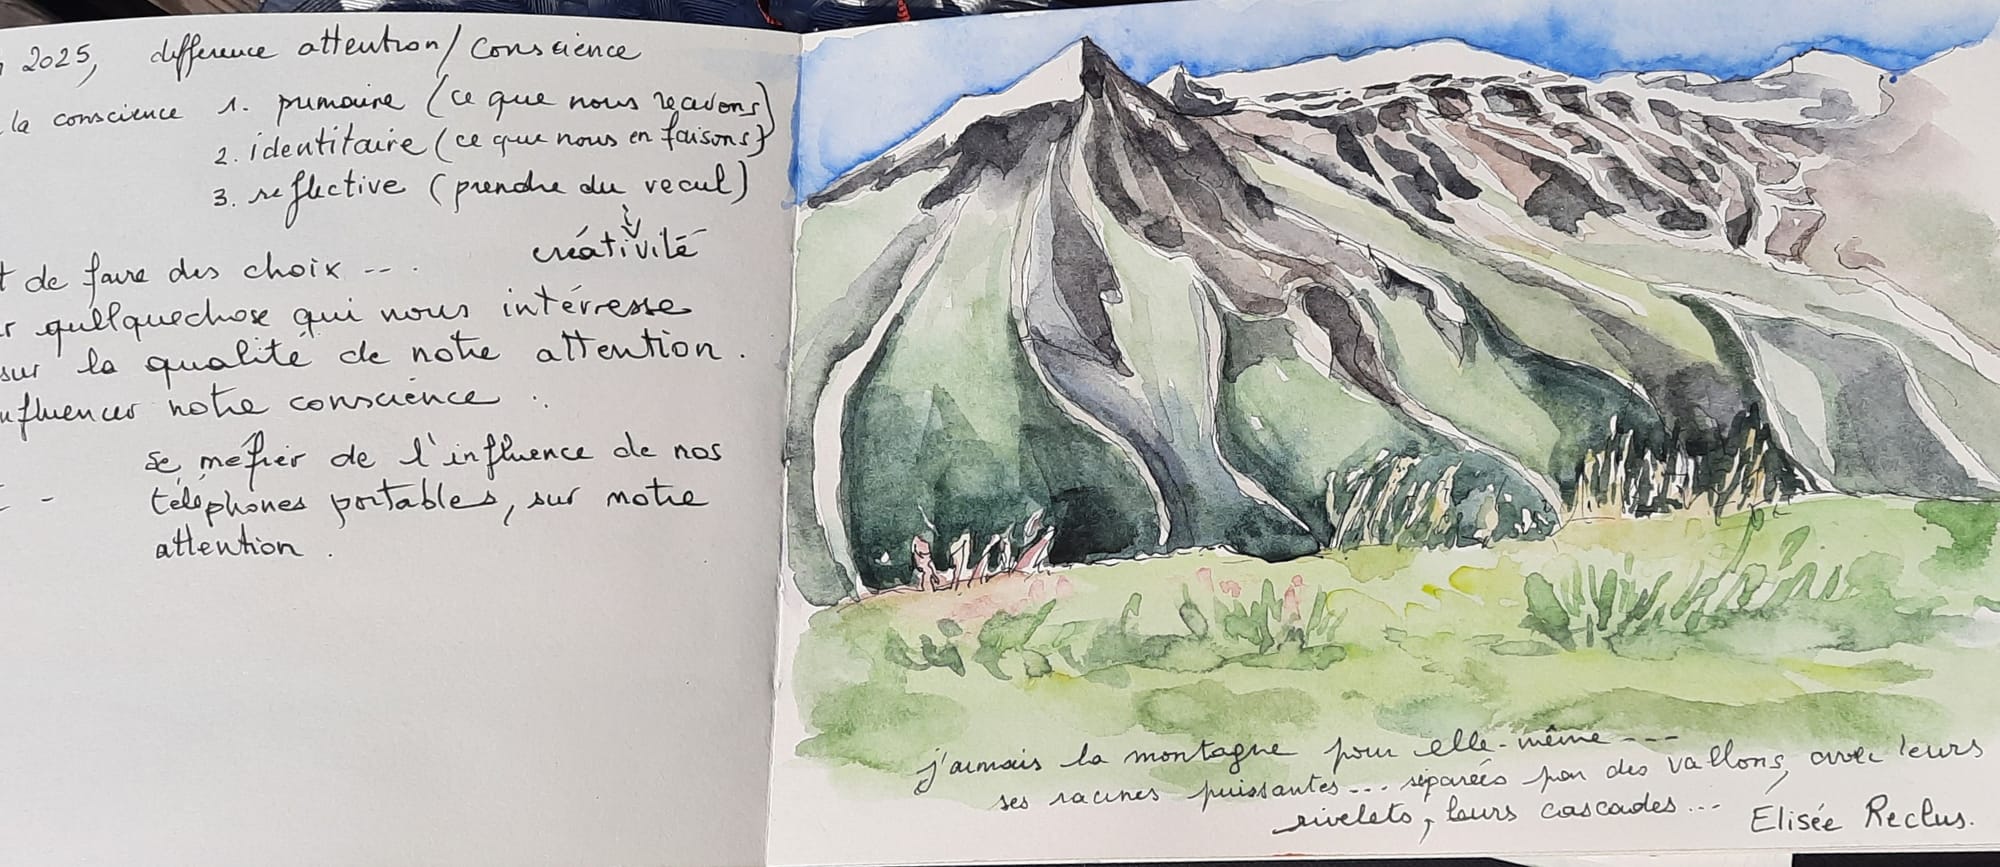 2025, différence attention/conscience
la conscience 1. primaire (ce que nous recevons)
2. identitaire (ce que nous en faisons)
3. reflective (prendre du recul)
créativité
de faire des choix ...
quelquechose qui nous intérresse
sur la qualité de notre attention.
influencer notre conscience
se méfier de l'influence de nos
téléphones portables, sur notre
attention.
j'aimais la montagne pour elle-même ---
ses racines puissantes... séparées par des vallons, avec leurs
rivelets, leurs cascades...
Elisée Reclus.